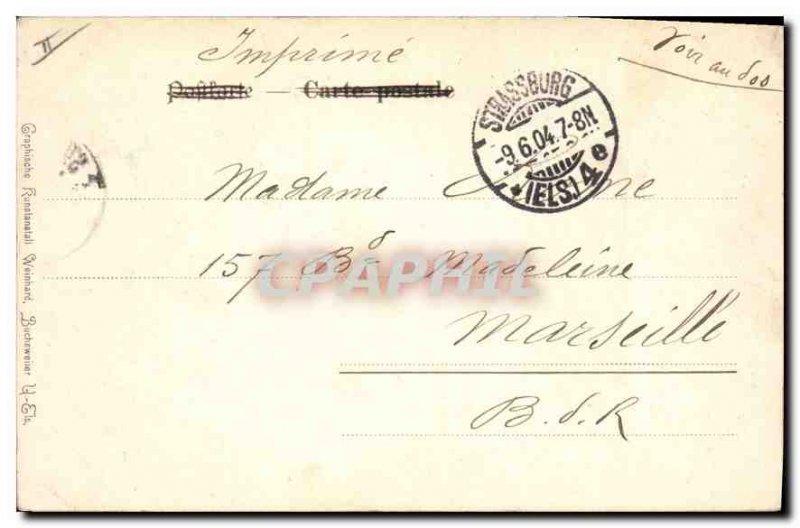 II
Imprimé
Voir au dos
Postkarte — Carte postale
STRASSBURG
-9.6.04.7-8N.
* (ELS.) 4 e
Madame
157 Bd Madeleine
CPAPHIL
Marseille
B. d. R
Graphische Kunstanstalt Weinhard, Buchsweiler U-Els.